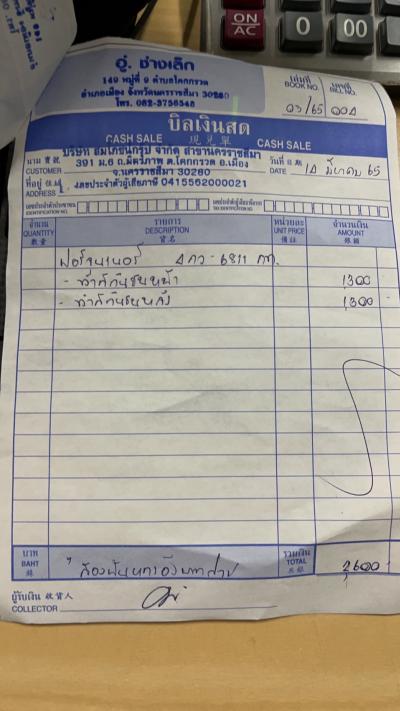 ON/AC
0
00
อู่. ช่างเล็ก
149 หมู่ที่ 9 ตำบลโคกกรวด
อำเภอเมือง จังหวัดนครราชสีมา 30280
โทร. 082-3756348
เล่มที่ BOOK NO. เลขที่ BILL NO.
03/65 004
บิลเงินสด
CASH SALE 現兑單 CASH SALE
บริษัท สมโภชน์กรุ๊ป จำกัด สาขานครราชสีมา
นาม 寶號 CUSTOMER 391 ม.6 ถ.มิตรภาพ ต.โคกกรวด อ.เมือง
วันที่ DATE 14 มีนาคม 65
จ.นครราชสีมา 30280
ที่อยู่ ADDRESS เลขประจำตัวผู้เสียภาษี 0415562000021
IDENTIFICATION NO.
จำนวน QUANTITY 數量 รายการ DESCRIPTION 貨名 หน่วยละ UNIT PRICE จำนวนเงิน AMOUNT 銀額
ฟอร์จูนเนอร์ 4กว-6811 กท.
- ทำสีกันชนหน้า 1300
- ทำสีกันชนหลัง 1300
บาท BAHT 銖 สองพันหกร้อยบาทถ้วน รวมเงิน TOTAL 2600
ผู้รับเงิน 收貨人
COLLECTOR